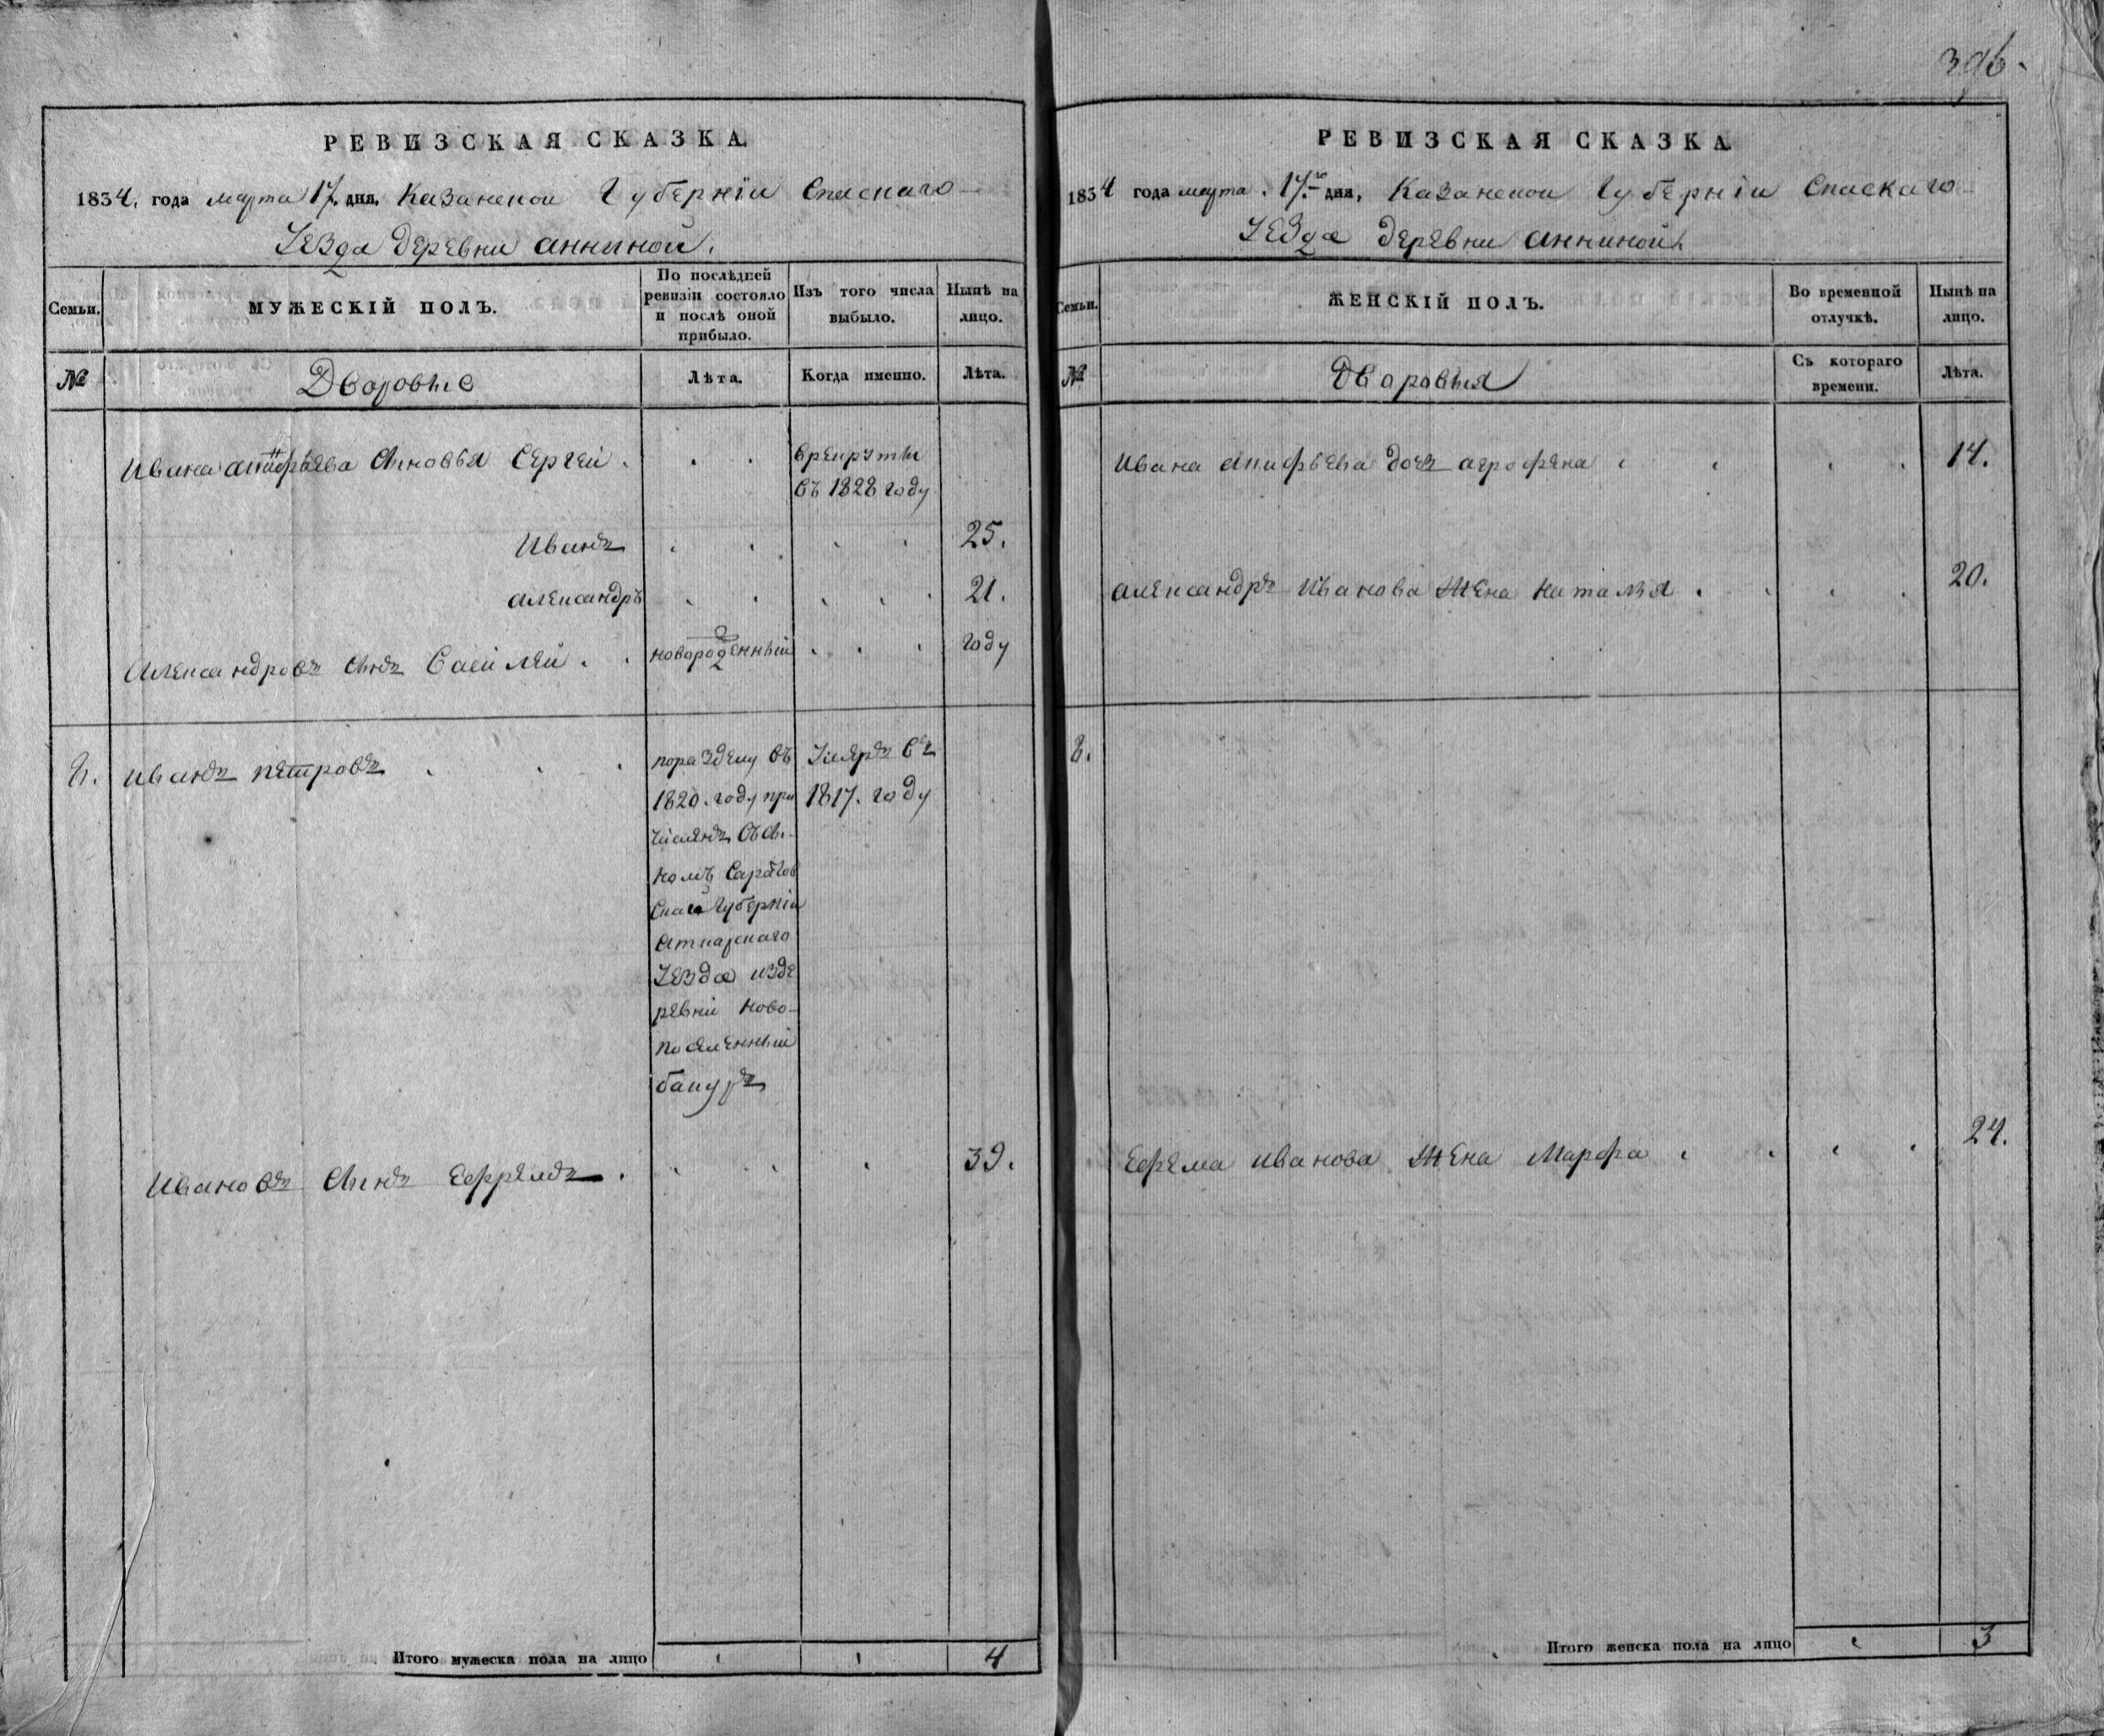 396.
РЕВИЗСКАЯ СКАЗКА.
1834, года марта 17. дня. Казанской Губерніи Спаскаго
Уезда деревни анниной.
Семьи.
МУЖЕСКІЙ ПОЛЪ.
По послѣдней ревизіи состояло и послѣ оной прибыло.
Изъ того числа выбыло.
Нынѣ на лицо.
№
Дворовые
Лѣта.
Когда именно.
Лѣта.
Ивана анифрьева сыновья Сергей . . . врекруты
въ 1828 году
Иванъ 25.
александръ 21.
Александровъ сынъ Василей . . новорожденный году
2. иванъ петровъ поразделу въ Умеръ въ
1820. году при 1817. году
численъ съсы-
номъ Саратов
Скай Губерніи
Аткарскаго
Уезда изде
ревни ново-
поселенный
бакуръ
Ивановъ сынъ Ефремъ . 39.
Итого мужеска пола на лицо 4
РЕВИЗСКАЯ СКАЗКА
1834 года марта . 17.го дня, Казанской Губерніи Спаскаго
Уезда деревни анниной
Семьи.
ЖЕНСКІЙ ПОЛЪ.
Во временной отлучкѣ.
Нынѣ на лицо.
№
Дворовыя
Съ котораго времени.
Лѣта.
Ивана анифрьева дочь агрофена 14.
александръ Иванова жена наталья . 20.
2.
Ефрема иванова жена Марфа 24.
Итого женска пола на лицо 3